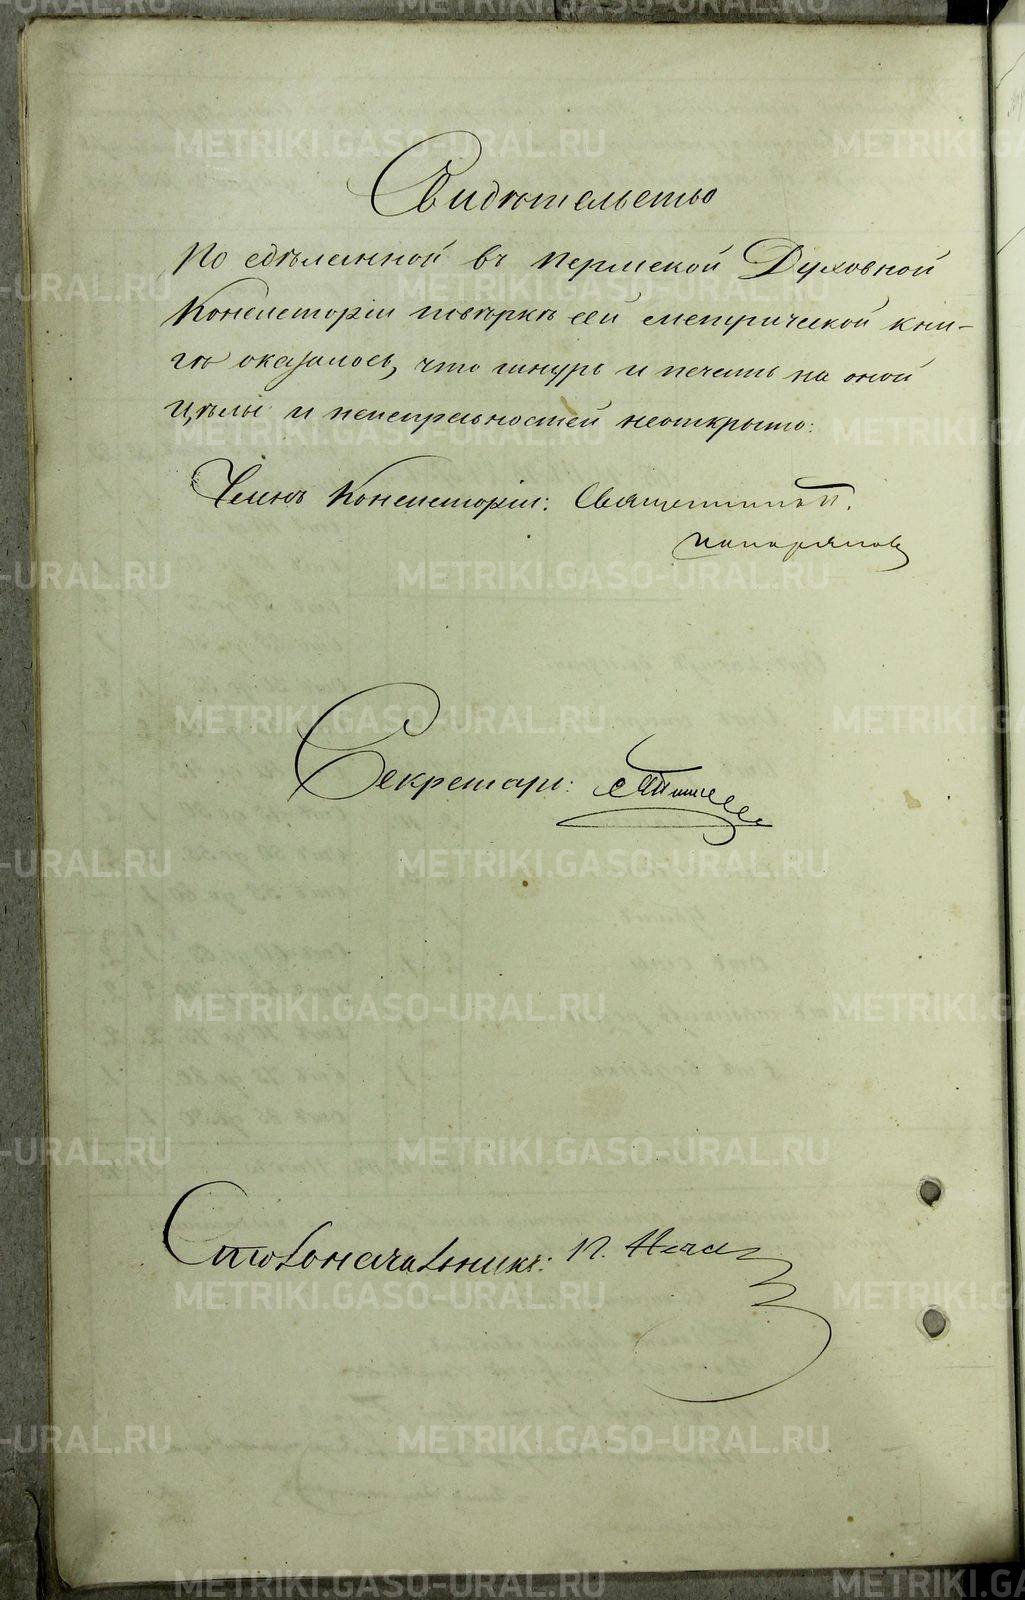 Свидѣтельство
По сдѣланной въ Пермской Духовной
Консисторіи повѣркѣ сей метрической кни-
гѣ оказалось, что шнуръ и печать на оной
цѣлы и неисправностей неоткрыто:
Членъ Консисторіи: Священникъ П.
Секретарь:
Столоначальникъ: П.
METRIKI.GASO-URAL.RU